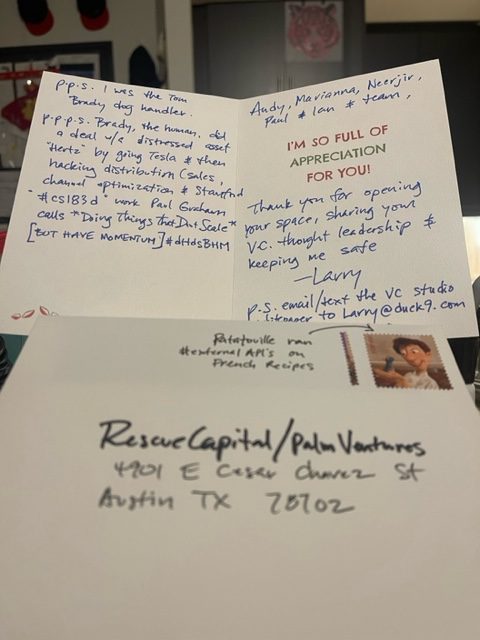 p.p.s. I was the Tom
Brady dog handler.
p.p.p.s. Brady, the human, did
a deal w/a distressed asset
"Hertz" by going Tesla & then
hacking distribution (sales,
channel optimization & Stanford
"#cs183d" work Paul Graham
calls *Doing Things That Dnt Scale*
[BUT HAVE MOMENTUM] #dtdsBHM
Andy, Marianna, Neerjir,
Paul & Ian & team,
I'M SO FULL OF
APPRECIATION
FOR YOU!
Thank you for opening
your space, sharing your
V.C. thought leadership &
keeping me safe
—Larry
p.s. email/text the VC studio
to Larry@duck9.com
Ratatouille ran
#external API's on
French Recipes
RescueCapital/Palm Ventures
4901 E Cesar Chavez St
Austin TX 78702